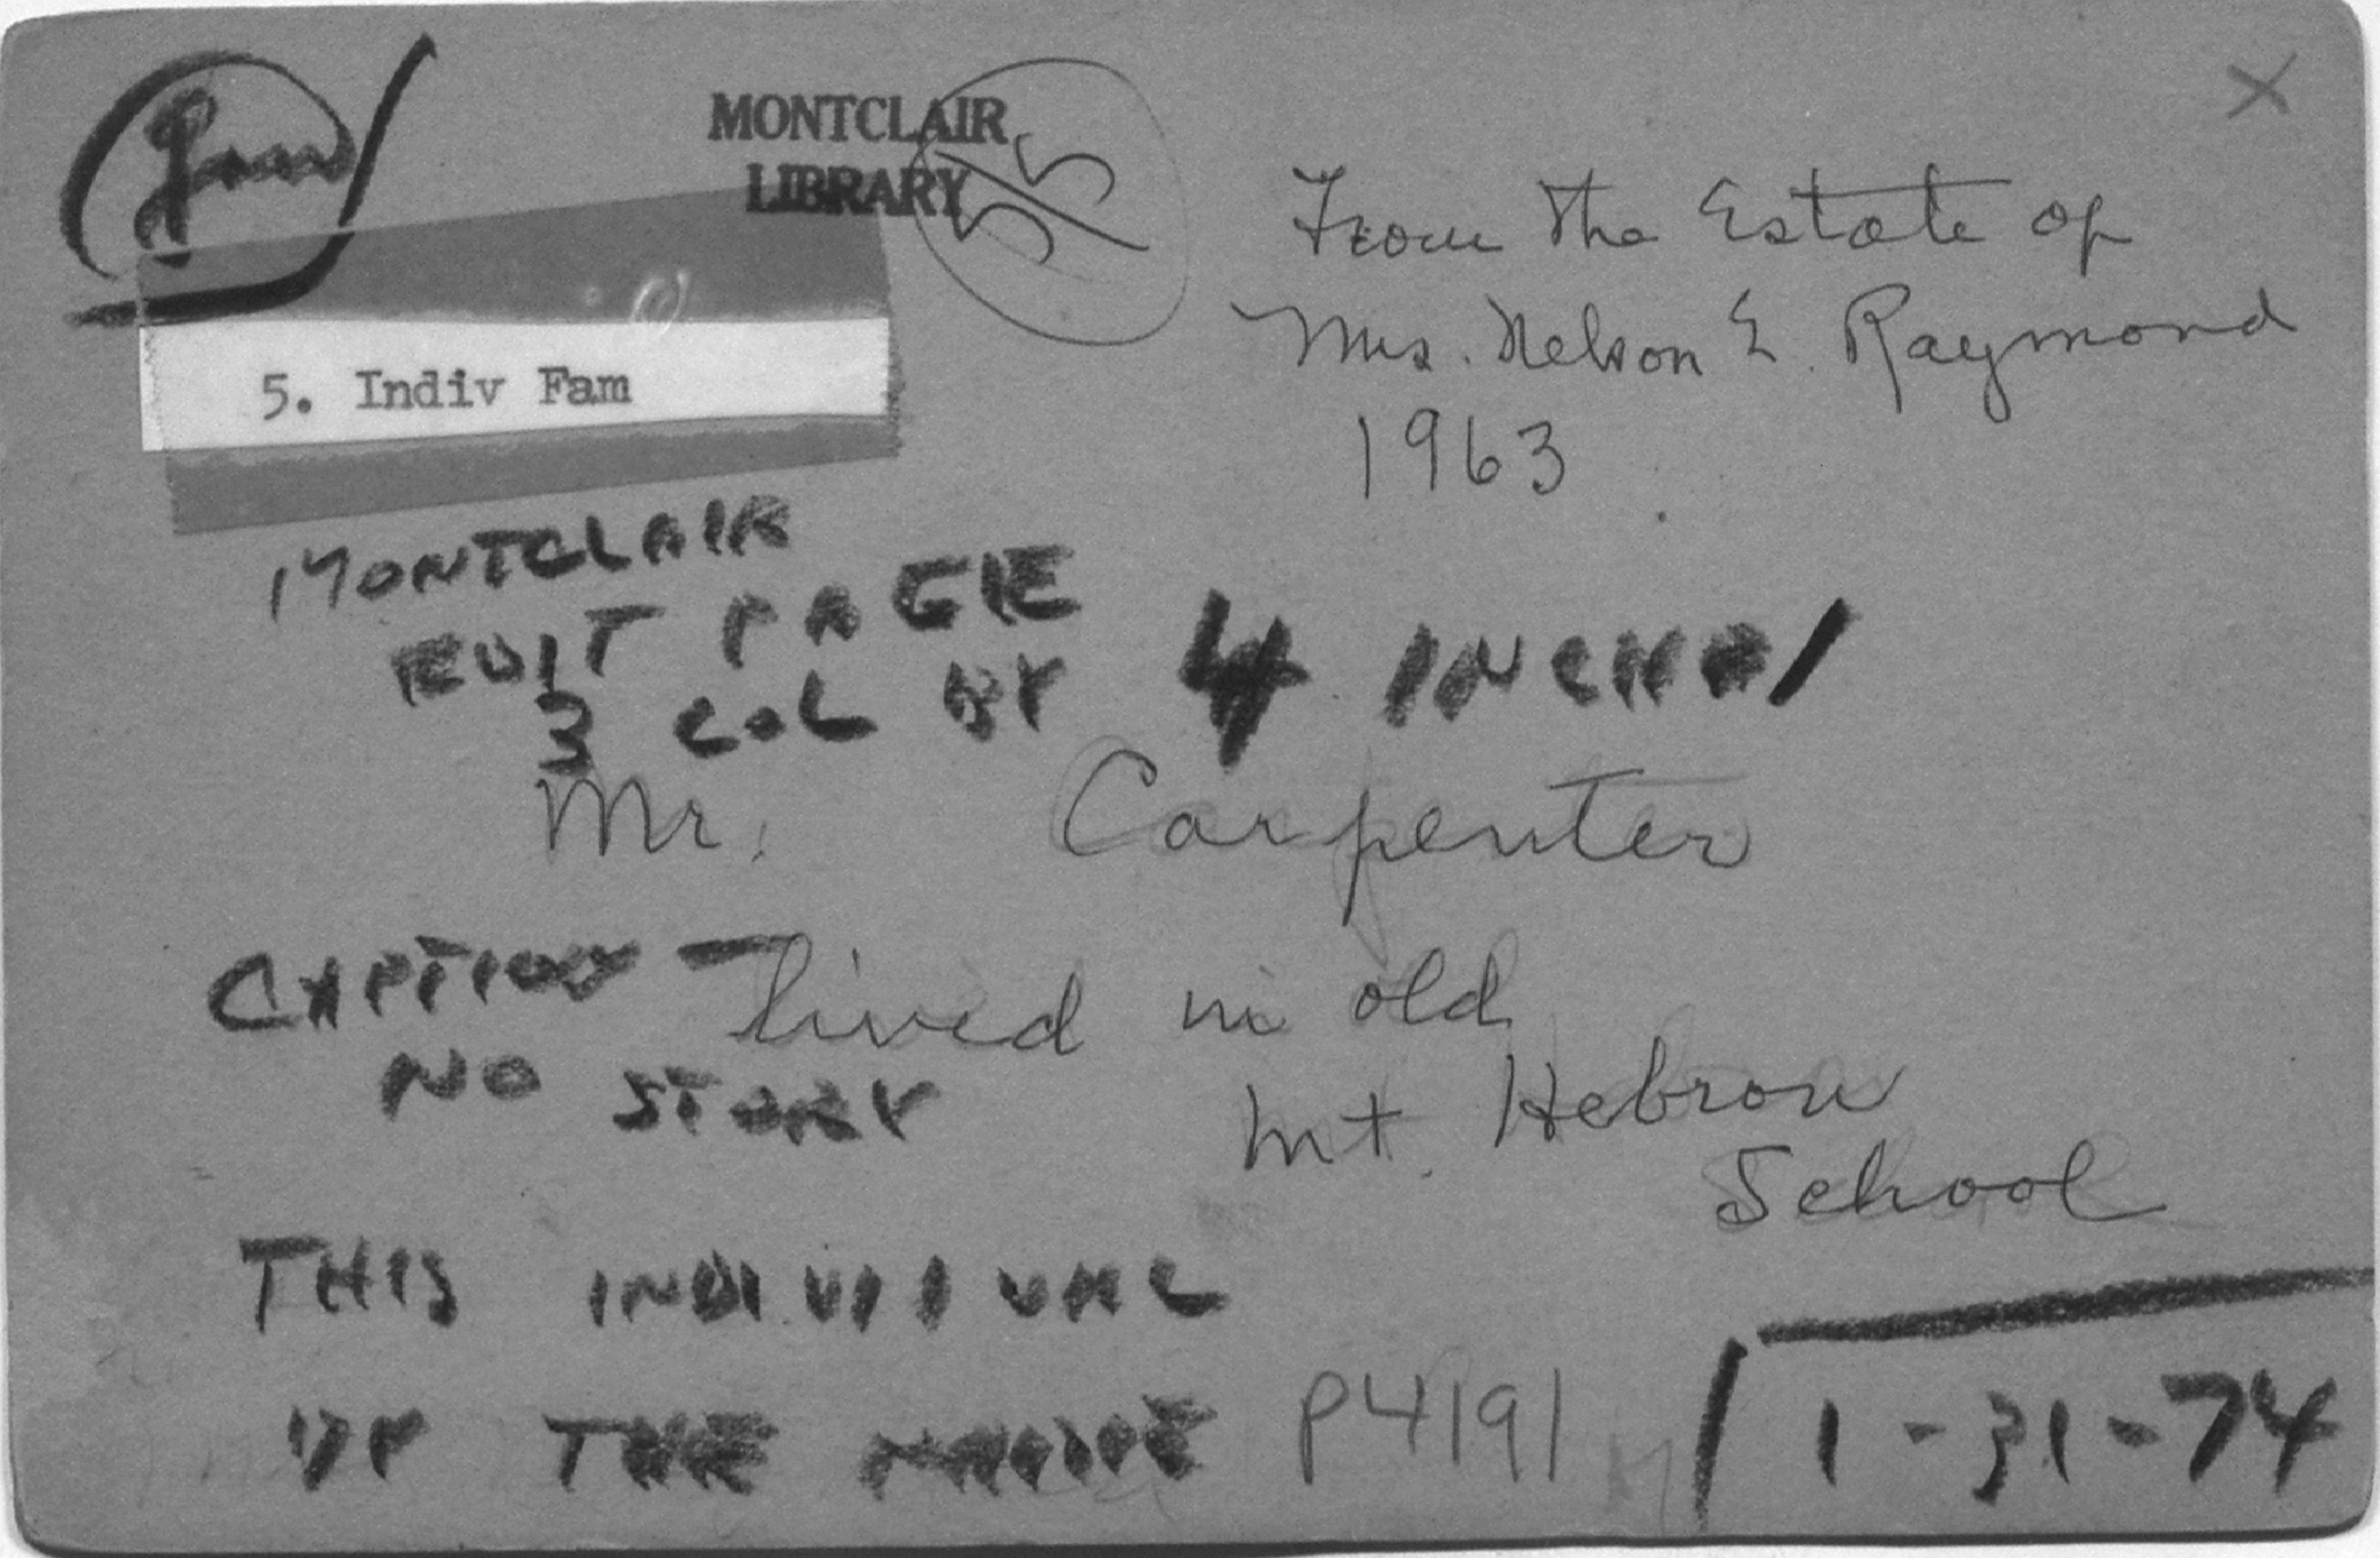 MONTCLAIR
LIBRARY
X
From the Estate of
Mrs. Nelson E. Raymond
1963
5. Indiv Fam
MONTCLAIR
EDIT PAGE
3 COL BY 4 INCHES
Mr. Carpenter
CAPTION —
NO STORY
lived in old
Mt. Hebron
School
THIS INDIVIDUAL
THE
P4191
1-31-74